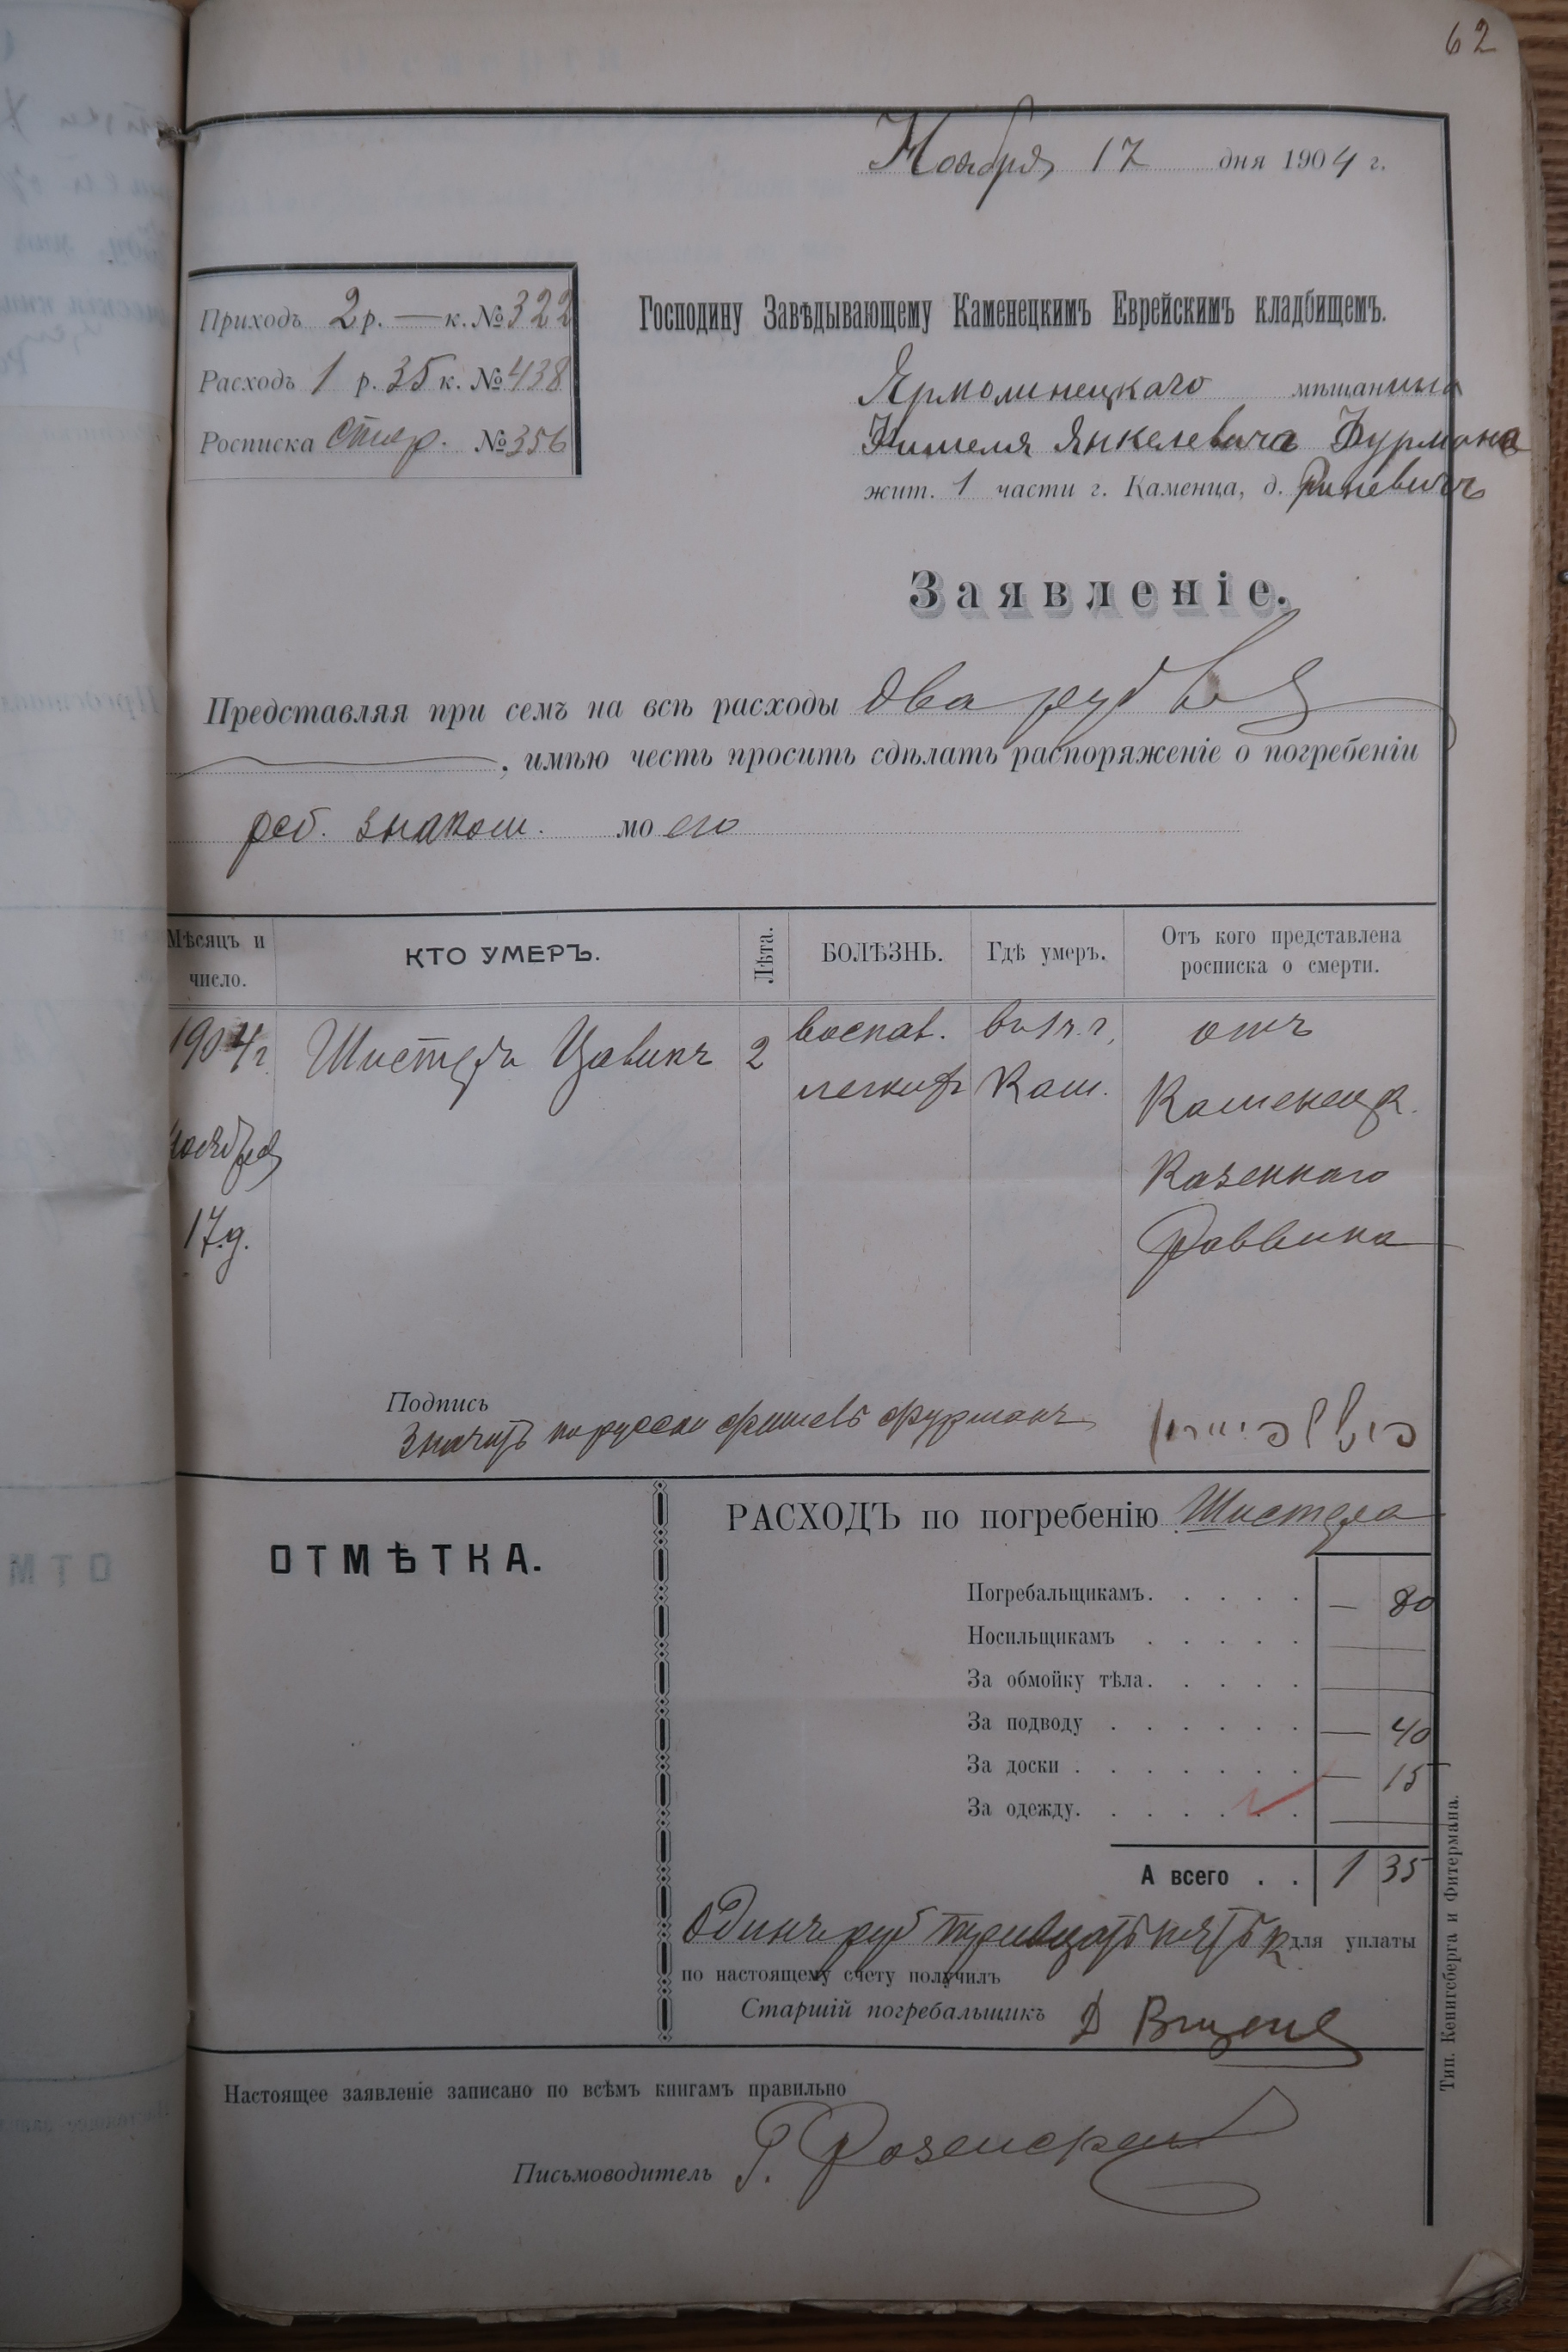 62
Ноября 17 дня 1904 г.
Приходъ 2 р. — к. № 322
Расходъ 1 р. 35 к. № 438
Росписка стар. № 356
Господину Завѣдывающему Каменецкимъ Еврейскимъ кладбищемъ.
Ярмолинецкаго мѣщанина
Фишеля Янкелевича Фурмана
жит. 1 части г. Каменца, д.
Заявленіе.
Представляя при семъ на всѣ расходы два рубля
, имѣю честь просить сдѣлать распоряженіе о погребеніи
реб. знаком. моего
Мѣсяцъ и число.
КТО УМЕРЪ.
Лѣта.
БОЛѢЗНЬ.
Гдѣ умеръ.
Отъ кого представлена росписка о смерти.
1904 г
ноября
17 д.
Шистеръ Цавикъ
2
воспал.
легкихъ
въ 1 ч. г.
Кам.
отъ
Каменецк.
Казеннаго
Раввина
Подпись
Значитъ по русски Фишель Фурманъ
ОТМѢТКА.
РАСХОДЪ по погребенію Шистера
Погребальщикамъ. — 80
Носильщикамъ
За обмойку тѣла.
За подводу — 40
За доски — 15
За одежду.
А всего 1 35
Одинъ руб тридцать пять к для уплаты
по настоящему счету получилъ
Старшій погребальщикъ Д
Настоящее заявленіе записано по всѣмъ книгамъ правильно
Письмоводитель
Тип. Кенигсберга и Фитермана.